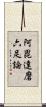 阿毘達磨
六足論